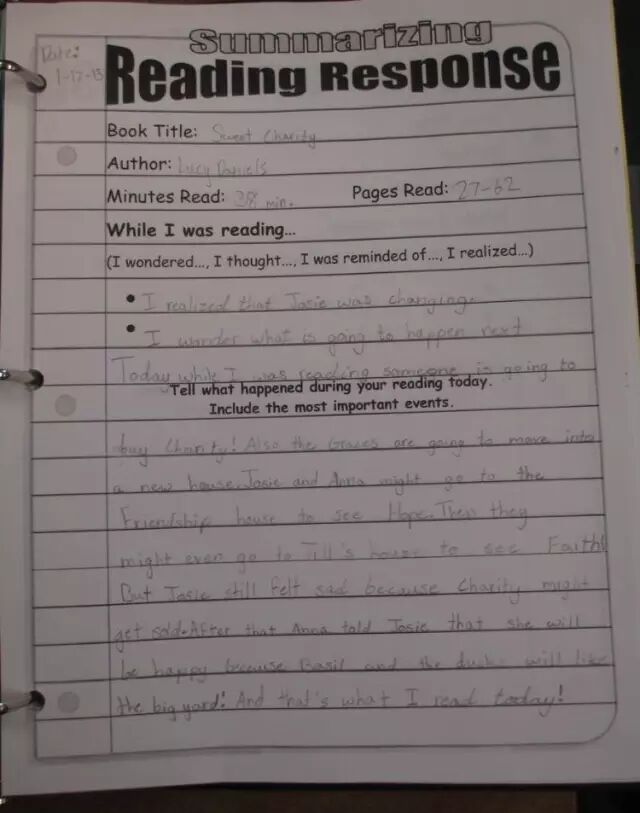 Summarizing
Date:
1-17-13
Reading Response
Book Title: Sweet Charity
Author: Lucy Daniels
Minutes Read: 38 min. Pages Read: 27-62
While I was reading...
(I wondered..., I thought..., I was reminded of..., I realized...)
• I realized that Josie was changing.
• I wonder what is going to happen next
Today while I was reading someone is going to
Tell what happened during your reading today.
Include the most important events.
buy Charity! Also the Graces are going to move into
a new house. Josie and Anna might go to the
Friendship house to see Hope. Then they
might even go to Jill's house to see Faith!
But Josie still felt sad because Charity might
get sold. After that Anna told Josie that she will
be happy because Basil and the ducks will like
the big yard! And that's what I read today!